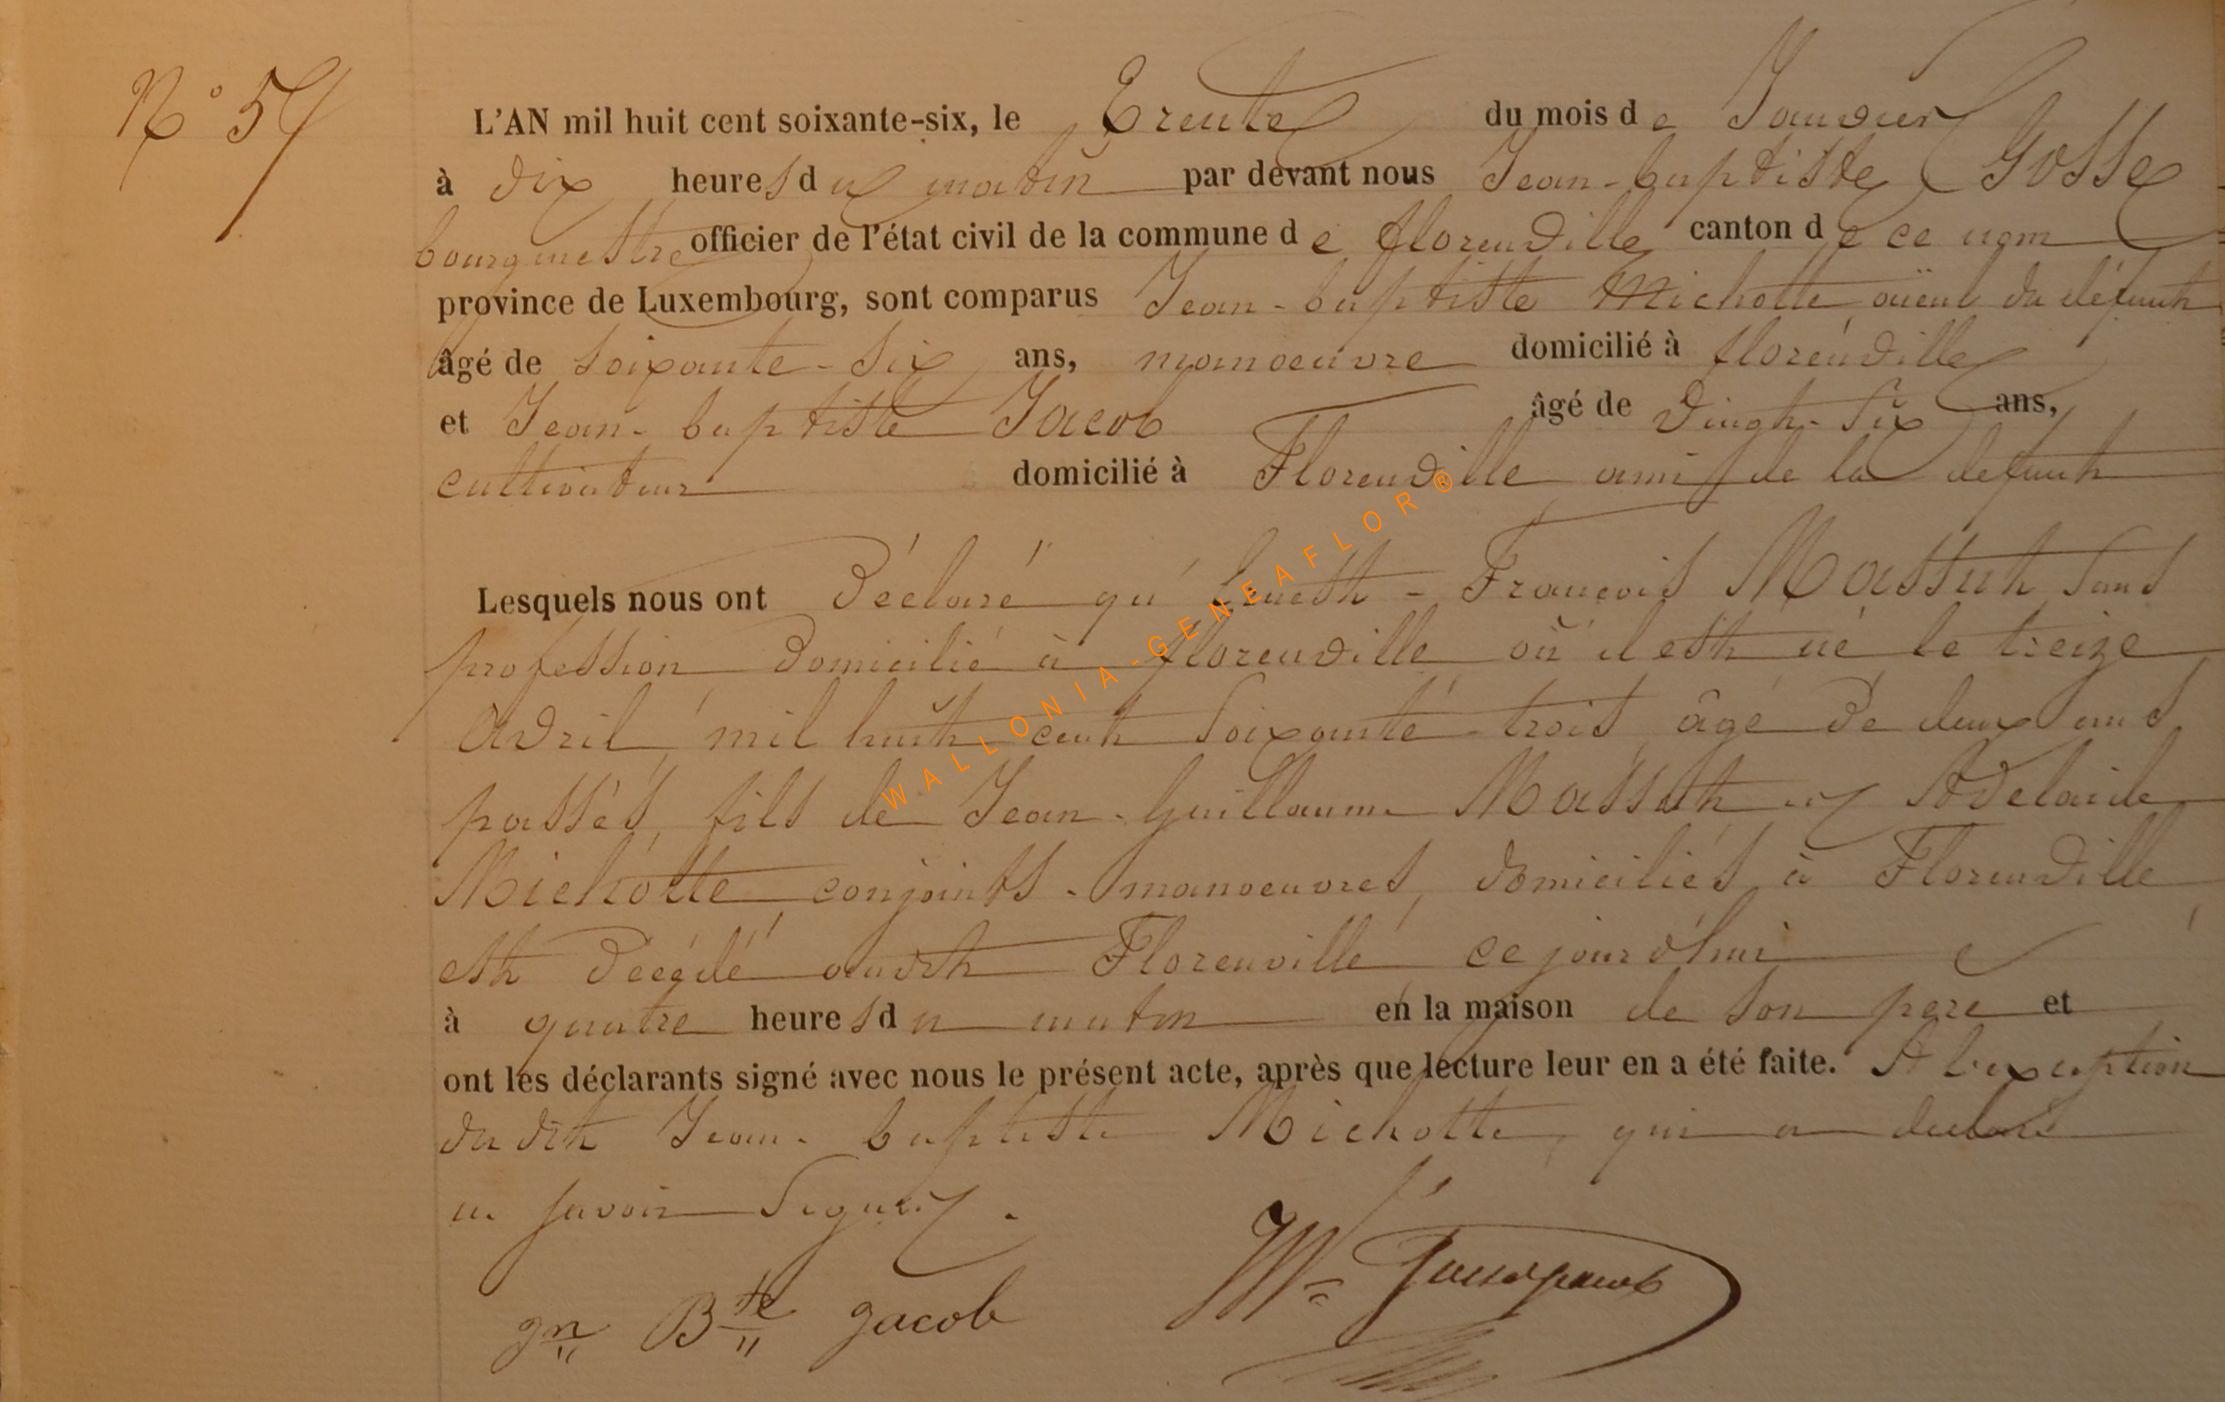 N° 57
L'AN mil huit cent soixante-six, le Trente du mois de Janvier
à dix heures du matin par devant nous Jean-baptiste Gosse
bourgmestre officier de l'état civil de la commune de florenville canton de ce nom
province de Luxembourg, sont comparus Jean-baptiste Michotte, aïeul du défunt
âgé de soixante-six ans, manoeuvre domicilié à florenville
et Jean-baptiste Jacob âgé de vingt-six ans,
cultivateur domicilié à Florenville ami de la defunt
Lesquels nous ont Déclaré qu'Ernest-François Massut sans
profession domicilié à florenville où il est né le treize
Avril mil huit cent soixante trois, âgé de deux ans
passés, fils de Jean-Guillaume Massut et Adelaide
Michotte conjoints-manoeuvres, domiciliés à Florenville
est décédé audit Florenville cejourd'hui
à quatre heures du matin en la maison de son père et
ont les déclarants signé avec nous le présent acte, après que lecture leur en a été faite. A l'exception
du dit Jean-baptiste Michotte, qui a declaré
ne savoir Signer.
Jn Bte Jacob
WALLONIA-GENEAFLOR®